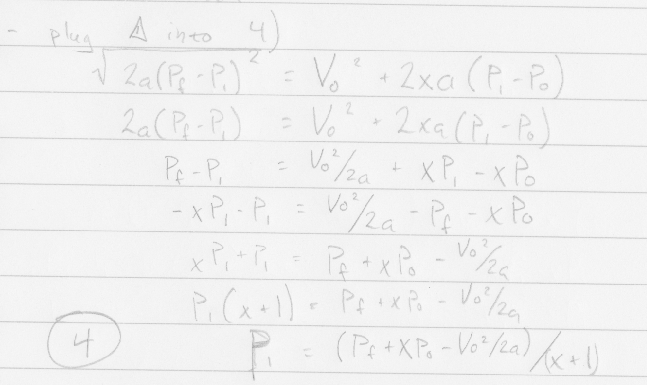 - plug △ into 4)
√2a(P_f - P_1)² = V_0² + 2xa(P_1 - P_0)
2a(P_f - P_1) = V_0² + 2xa(P_1 - P_0)
P_f - P_1 = V_0²/2a + xP_1 - xP_0
-xP_1 - P_1 = V_0²/2a - P_f - xP_0
xP_1 + P_1 = P_f + xP_0 - V_0²/2a
P_1(x+1) = P_f + xP_0 - V_0²/2a
4 P_1 = (P_f + XP_0 - V_0²/2a)/(x+1)